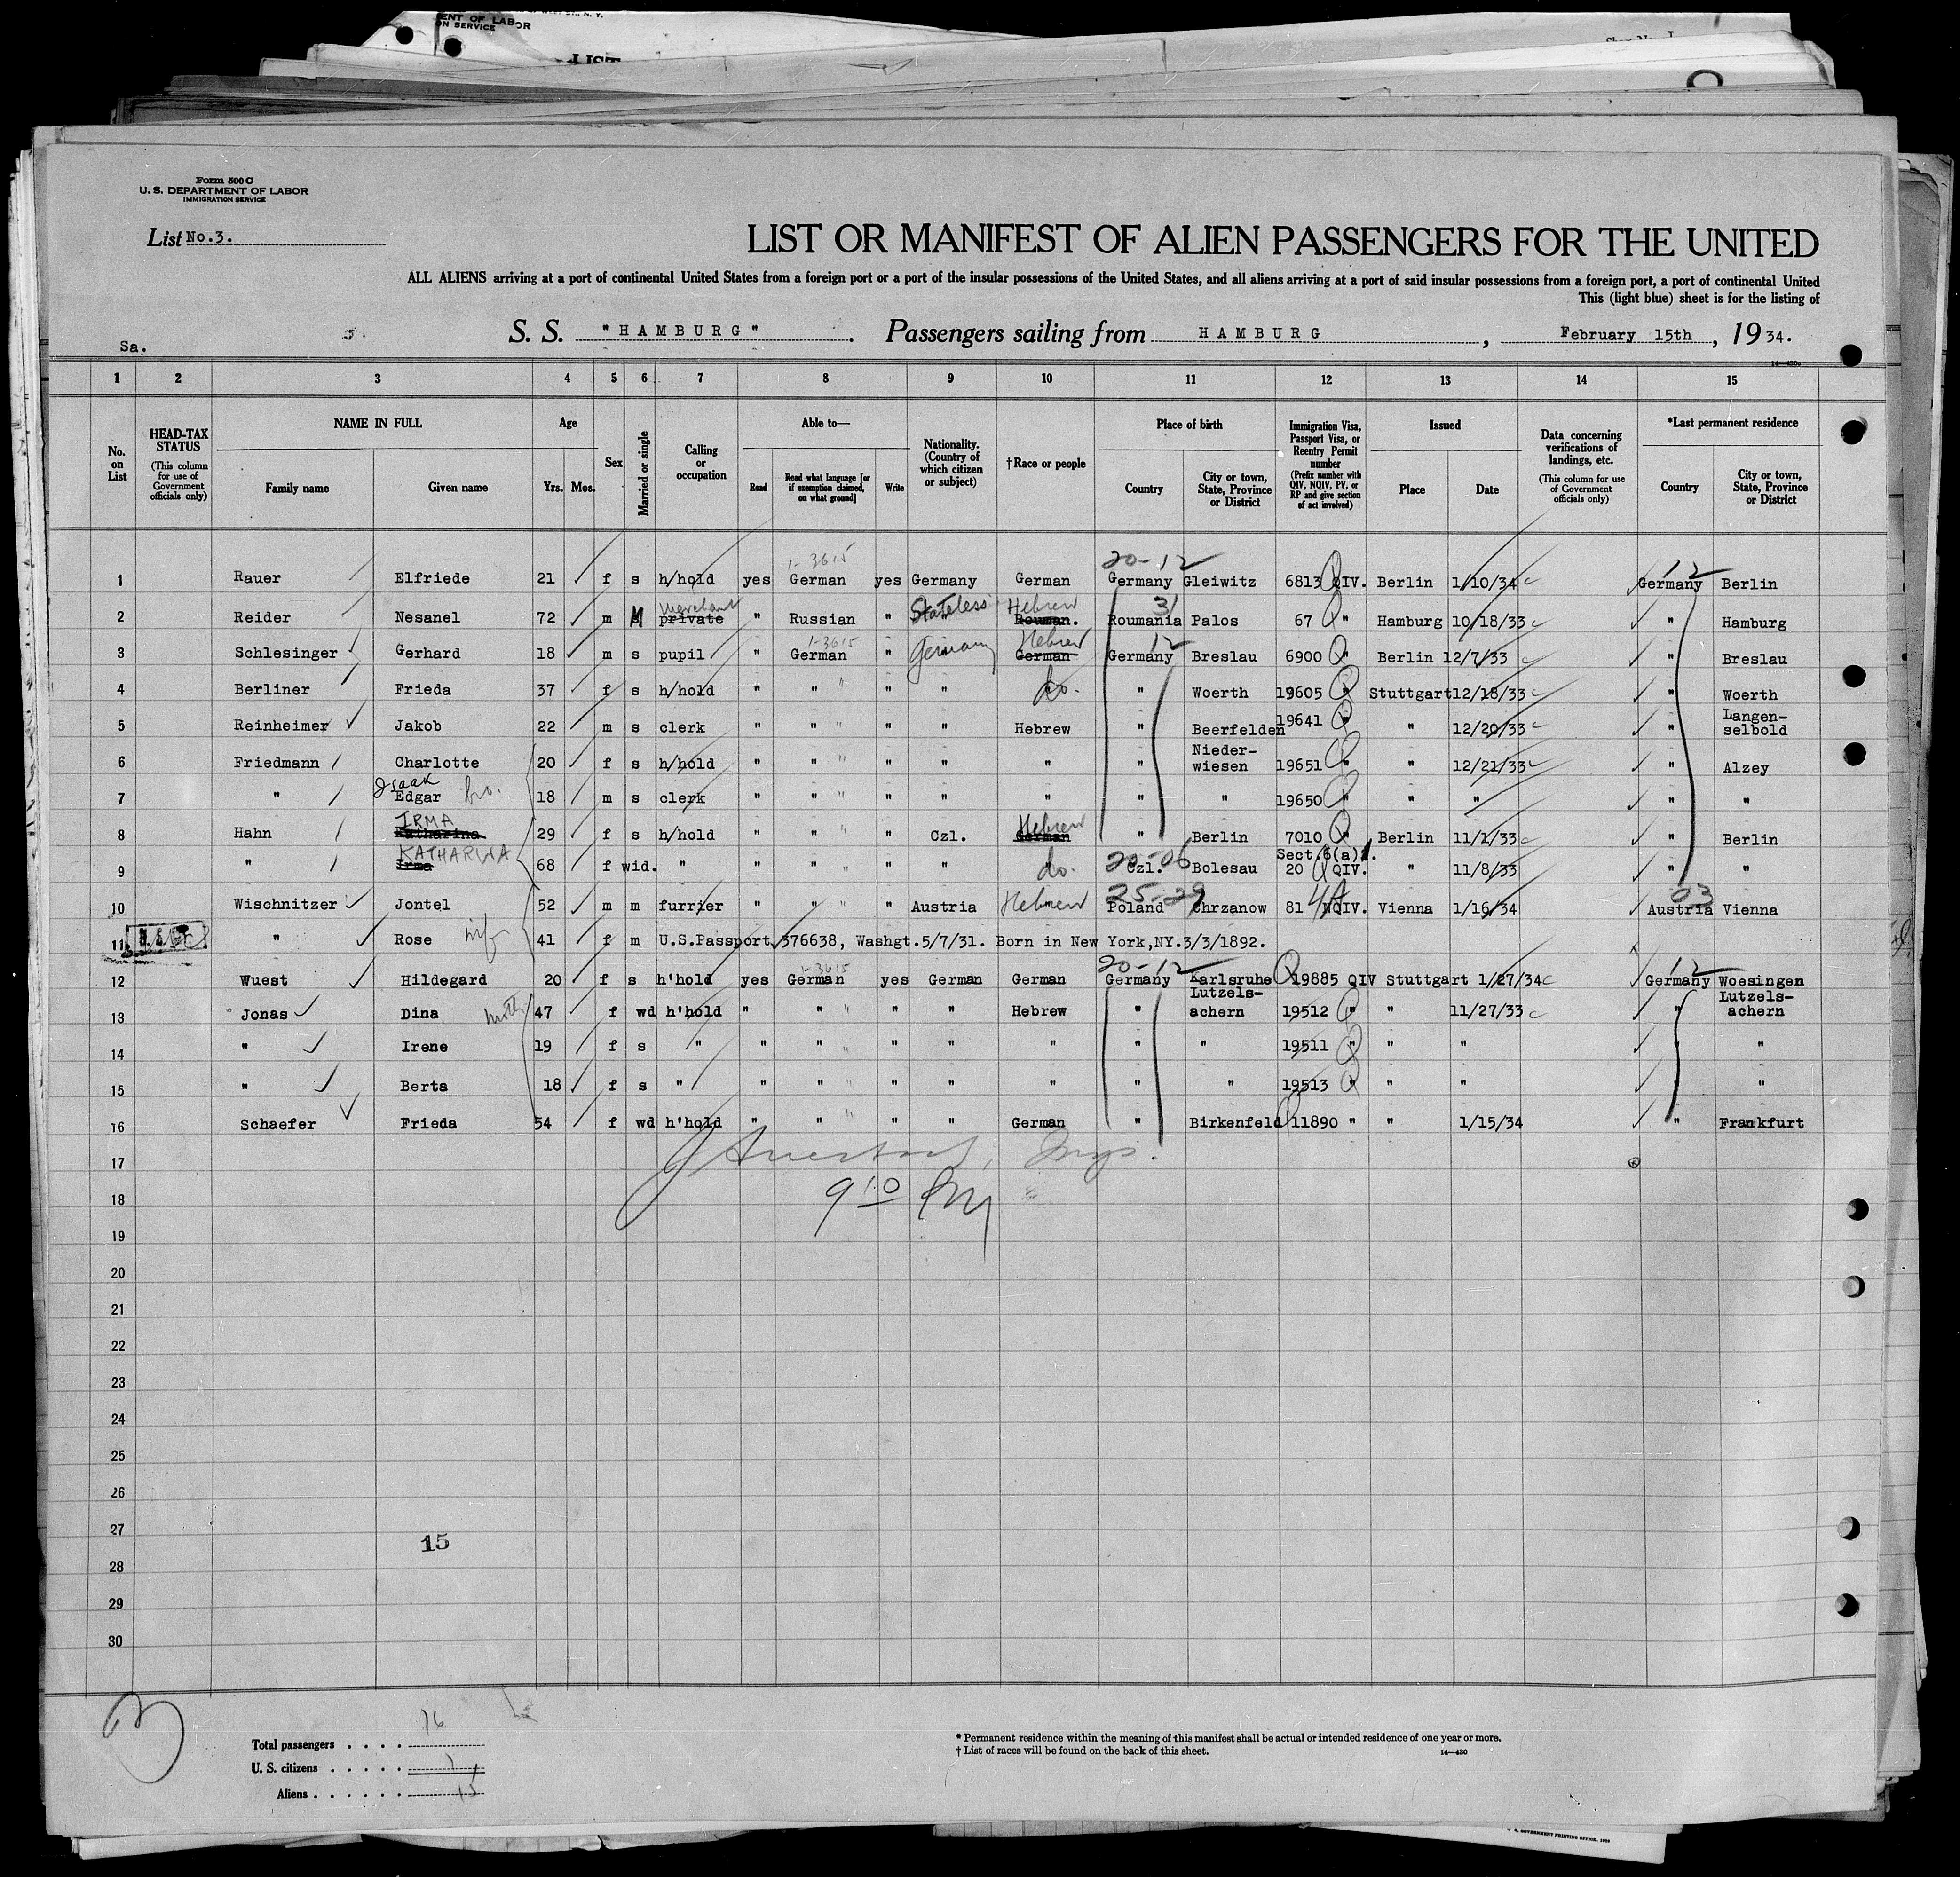 ENT OF LABOR
ON SERVICE
LIST
Form 500 C
U. S. DEPARTMENT OF LABOR
IMMIGRATION SERVICE
List No.3.
LIST OR MANIFEST OF ALIEN PASSENGERS FOR THE UNITED
ALL ALIENS arriving at a port of continental United States from a foreign port or a port of the insular possessions of the United States, and all aliens arriving at a port of said insular possessions from a foreign port, a port of continental United
This (light blue) sheet is for the listing of
Sa. S. S. "HAMBURG". Passengers sailing from HAMBURG, February 15th, 1934.
1 2 3 4 5 6 7 8 9 10 11 12 13 14 15
No. on List
HEAD-TAX STATUS (This column for use of Government officials only)
NAME IN FULL Family name Given name
Age Yrs. Mos.
Sex
Married or single
Calling or occupation
Able to— Read Read what language [or if exemption claimed, on what ground] Write
Nationality. (Country of which citizen or subject)
†Race or people
Place of birth Country City or town, State, Province or District
Immigration Visa, Passport Visa, or Reentry Permit number (Prefix number with QIV, NQIV, PV, or RP and give section of act involved)
Issued Place Date
Data concerning verifications of landings, etc. (This column for use of Government officials only)
*Last permanent residence Country City or town, State, Province or District
1-3615 20-12 12
1 Rauer Elfriede 21 f s h/hold yes German yes Germany German Germany Gleiwitz 6813 QIV. Berlin 1/10/34 Germany Berlin
Merchant Stateless Hebrew 31
2 Reider Nesanel 72 m M private " Russian " Rouman. Roumania Palos 67 " Hamburg 10/18/33 " Hamburg
1-3615 Germany Hebrew 12
3 Schlesinger Gerhard 18 m s pupil " German " German Germany Breslau 6900 " Berlin 12/7/33 " Breslau
4 Berliner Frieda 37 f s h/hold " " " " do. " Woerth 19605 " Stuttgart 12/18/33 " Woerth
5 Reinheimer Jakob 22 m s clerk " " " " Hebrew " Beerfelden 19641 " " 12/20/33 " Langen-selbold
6 Friedmann Charlotte 20 f s h/hold " " " " " " Nieder-wiesen 19651 " " 12/21/33 " Alzey
Isaak
7 " Edgar bro. 18 m s clerk " " " " " " " 19650 " " " " "
IRMA Hebrew
8 Hahn Katharina 29 f s h/hold " " " Czl. German " Berlin 7010 " Berlin 11/1/33 " Berlin
KATHARINA 20-06 Sect.6(a)1.
9 " Irma 68 f wid. " " " " " do. Czl. Bolesau 20 QIV. " 11/8/33 " "
25-29 4A 03
10 Wischnitzer Jontel 52 m m furrier " " " Austria Hebrew Poland Chrzanow 81 NQIV. Vienna 1/16/34 Austria Vienna
11 " Rose wife 41 f m U.S.Passport 376638, Washgt.5/7/31. Born in New York,NY.3/3/1892.
1-3615 20-12 12
12 Wuest Hildegard 20 f s h'hold yes German yes German German Germany Karlsruhe 19885 QIV Stuttgart 1/27/34 Germany Woesingen
13 Jonas Dina moth 47 f wd h'hold " " " " Hebrew " Lutzels-achern 19512 " " 11/27/33 " Lutzels-achern
14 " Irene 19 f s " " " " " " " " 19511 " " " " "
15 " Berta 18 f s " " " " " " " " 19513 " " " " "
16 Schaefer Frieda 54 f wd h'hold " " " " German " Birkenfeld 11890 " " 1/15/34 " Frankfurt
17
18
9 10 PM
19
20
21
22
23
24
25
26
27
15
28
29
30
3
Total passengers . . . . 16
U. S. citizens . . . . . 1
Aliens . . . . . . 15
* Permanent residence within the meaning of this manifest shall be actual or intended residence of one year or more.
† List of races will be found on the back of this sheet. 14—430
U. S. GOVERNMENT PRINTING OFFICE